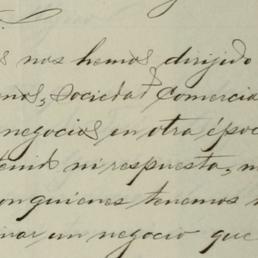 s nos hemos dirijido
nos, Sociedad Comercia
negocios en otra époc
tenid ni respuesta, n
on quienes tenemos
inar un negocio que